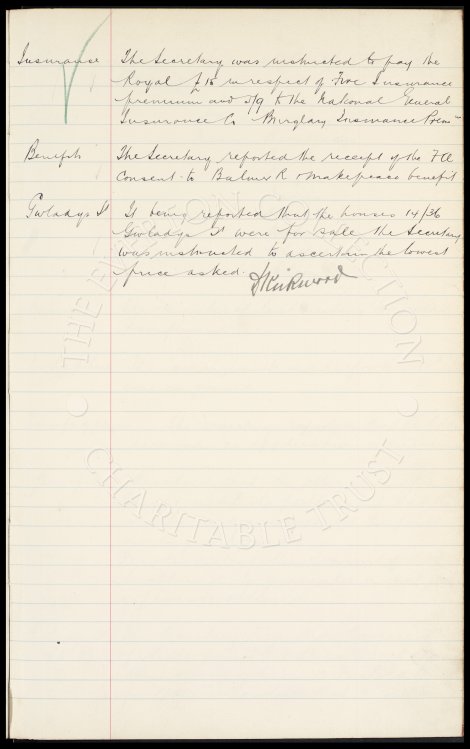 Insurance The Secretary was instructed to pay the
Royal £15 in respect of Fire Insurance
premium and 5/9 to the National General
Insurance Co Burglary Insurance Prem
Benefits The Secretary reported the receipt of the F A
Consent to Balmer R & Makepeace benefit
Gwladys St It being reported that the houses 14/36
Gwladys St were for sale the Secretary
was instructed to ascertain the lowest
price asked.
D Kirkwood
THE EVERTON COLLECTION
CHARITABLE TRUST